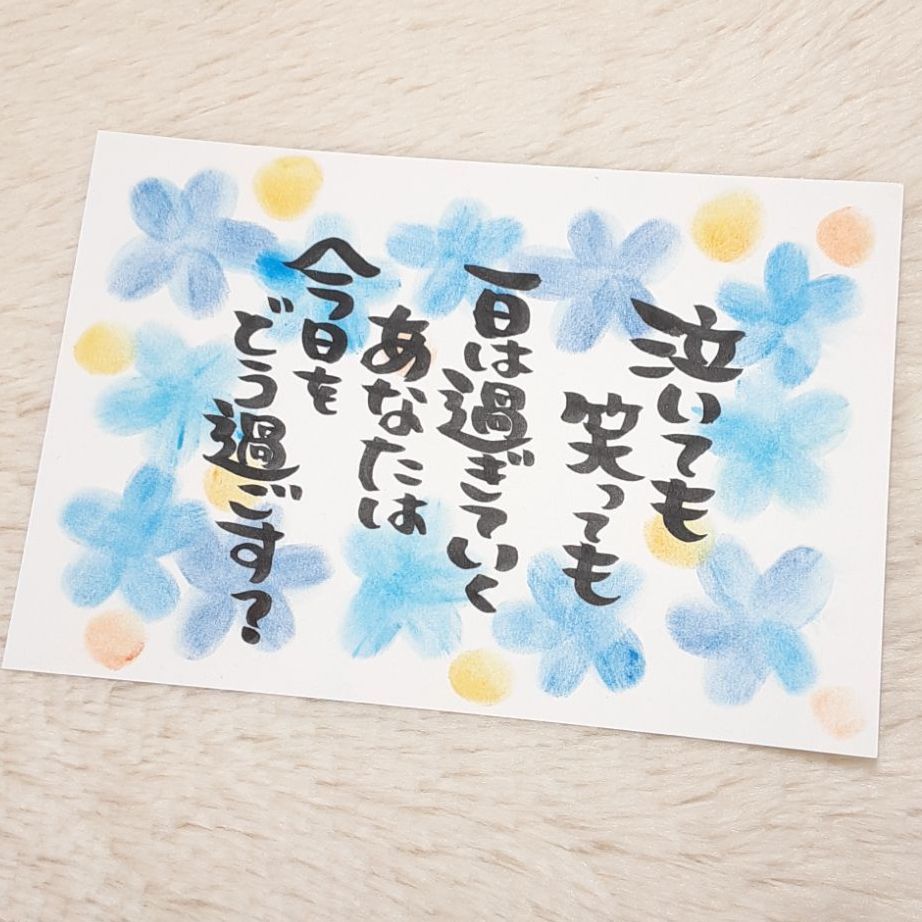 泣いても
笑っても
一日は過ぎていく
あなたは
今日を
どう過ごす?